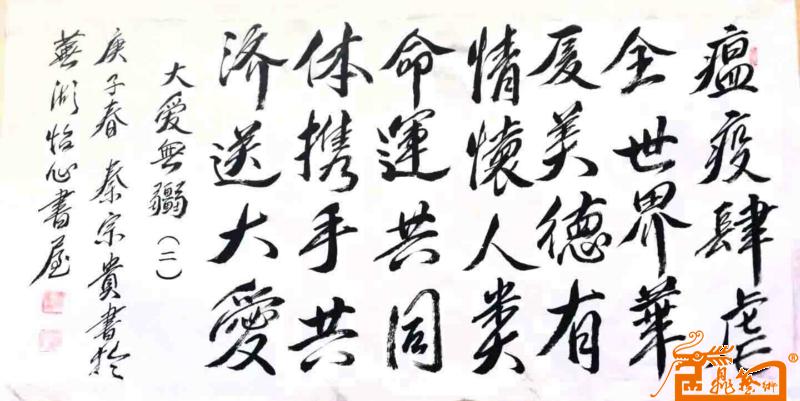 瘟疫肆虐
全世界華
厦美德有
情懷人类
命運共同
体携手共
济送大愛
大爱無疆（二）
庚子春 秦宗貴書於
蕪湖怡心書屋
鼎藝術